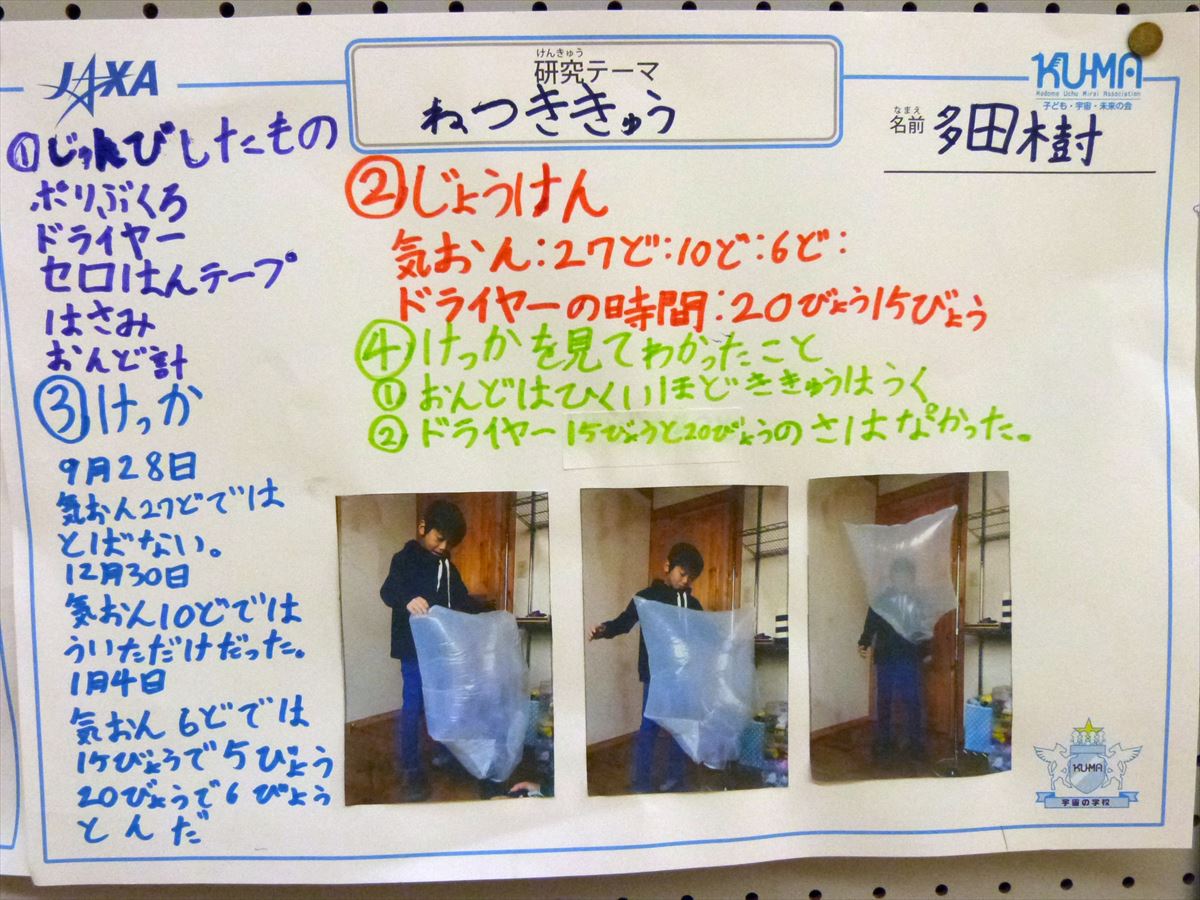 JAXA
けんきゅう
研究テーマ
ねつききゅう
KU-MA
Kodomo Uchu Mirai Association
子ども・宇宙・未来の会
なまえ
名前 多田樹
①じゅんびしたもの
ポリぶくろ
ドライヤー
セロはんテープ
はさみ
おんど計
②じょうけん
気おん:27ど:10ど:6ど:
ドライヤーの時間:20びょう15びょう
③けっか
9月28日
気おん27どでは
とばない。
12月30日
気おん10どでは
ういただけだった。
1月4日
気おん6どでは
15びょうで5びょう
20びょうで6びょう
とんだ
④けっかを見てわかったこと
①おんどはひくいほどききゅうはうく
②ドライヤー15びょうと20びょうのさはなかった。
KU-MA
宇宙の学校